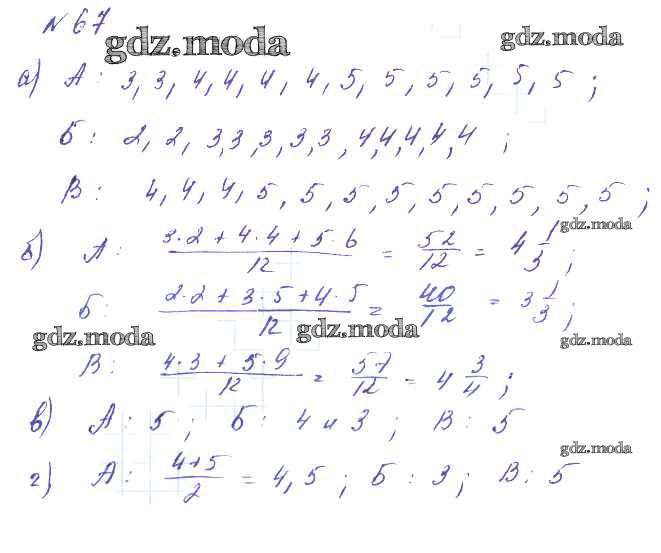 N 67
gdz.moda gdz.moda
а) А: 3, 3, 4, 4, 4, 4, 5, 5, 5, 5, 5, 5;
Б: 2, 2, 3, 3, 3, 3, 3, 4, 4, 4, 4, 4;
В: 4, 4, 4, 5, 5, 5, 5, 5, 5, 5, 5, 5;
gdz.moda
б) А: (3·2 + 4·4 + 5·6)/12 = 52/12 = 4 1/3;
Б: (2·2 + 3·5 + 4·5)/12 = 40/12 = 3 1/3;
gdz.moda gdz.moda gdz.moda
В: (4·3 + 5·9)/12 = 57/12 = 4 3/4;
в) А: 5; Б: 4 и 3; В: 5
gdz.moda
г) А: (4+5)/2 = 4,5; Б: 3; В: 5